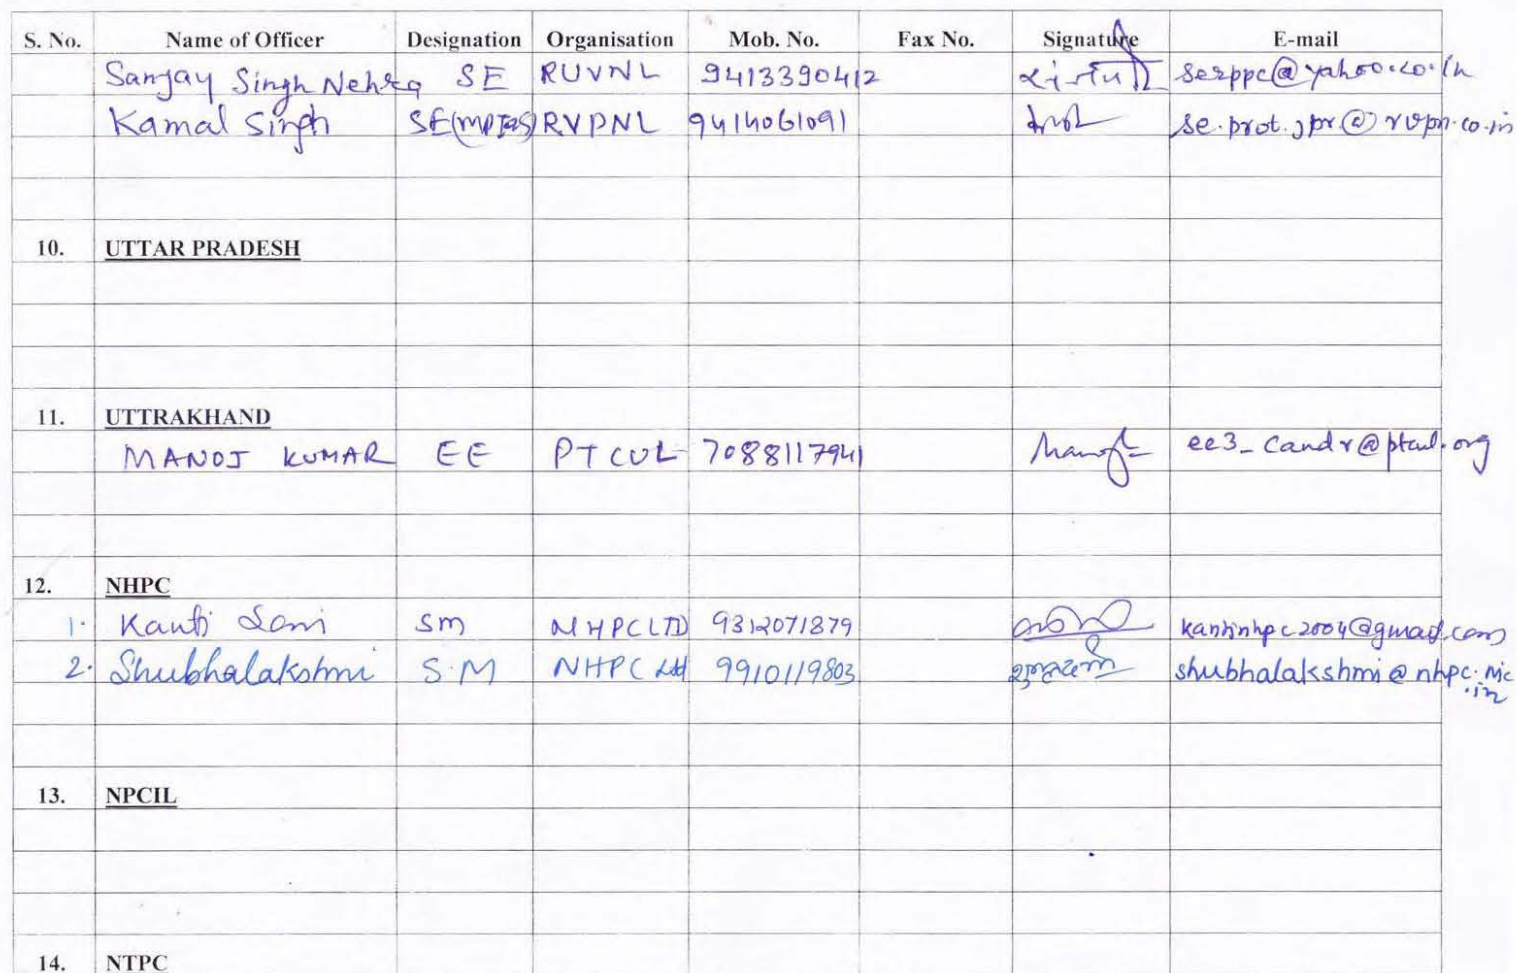 S. No. Name of Officer Designation Organisation Mob. No. Fax No. Signature E-mail
Sanjay Singh Nehra SE RUVNL 9413390412 serppc@yahoo.co.in
Kamal Singh SE(MPT&S) RVPNL 9414061091 se.prot.jpr@rvpn.co.in
10. UTTAR PRADESH
11. UTTRAKHAND
MANOJ KUMAR EE PTCUL 7088117941 ee3_candr@ptcul.org
12. NHPC
1. Kanti SM NHPC LTD 9312071879 kantinhpc2004@gmail.com
2. Shubhalakshmi S.M NHPC Ltd 9910119803 shubhalakshmi@nhpc.nic
.in
13. NPCIL
14. NTPC